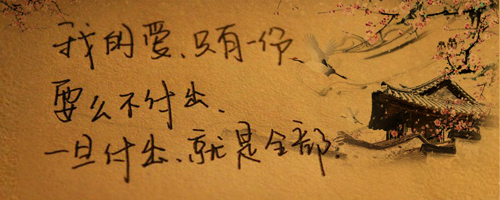 我的爱、只有一份、
要么不付出、
一旦付出、就是全部.